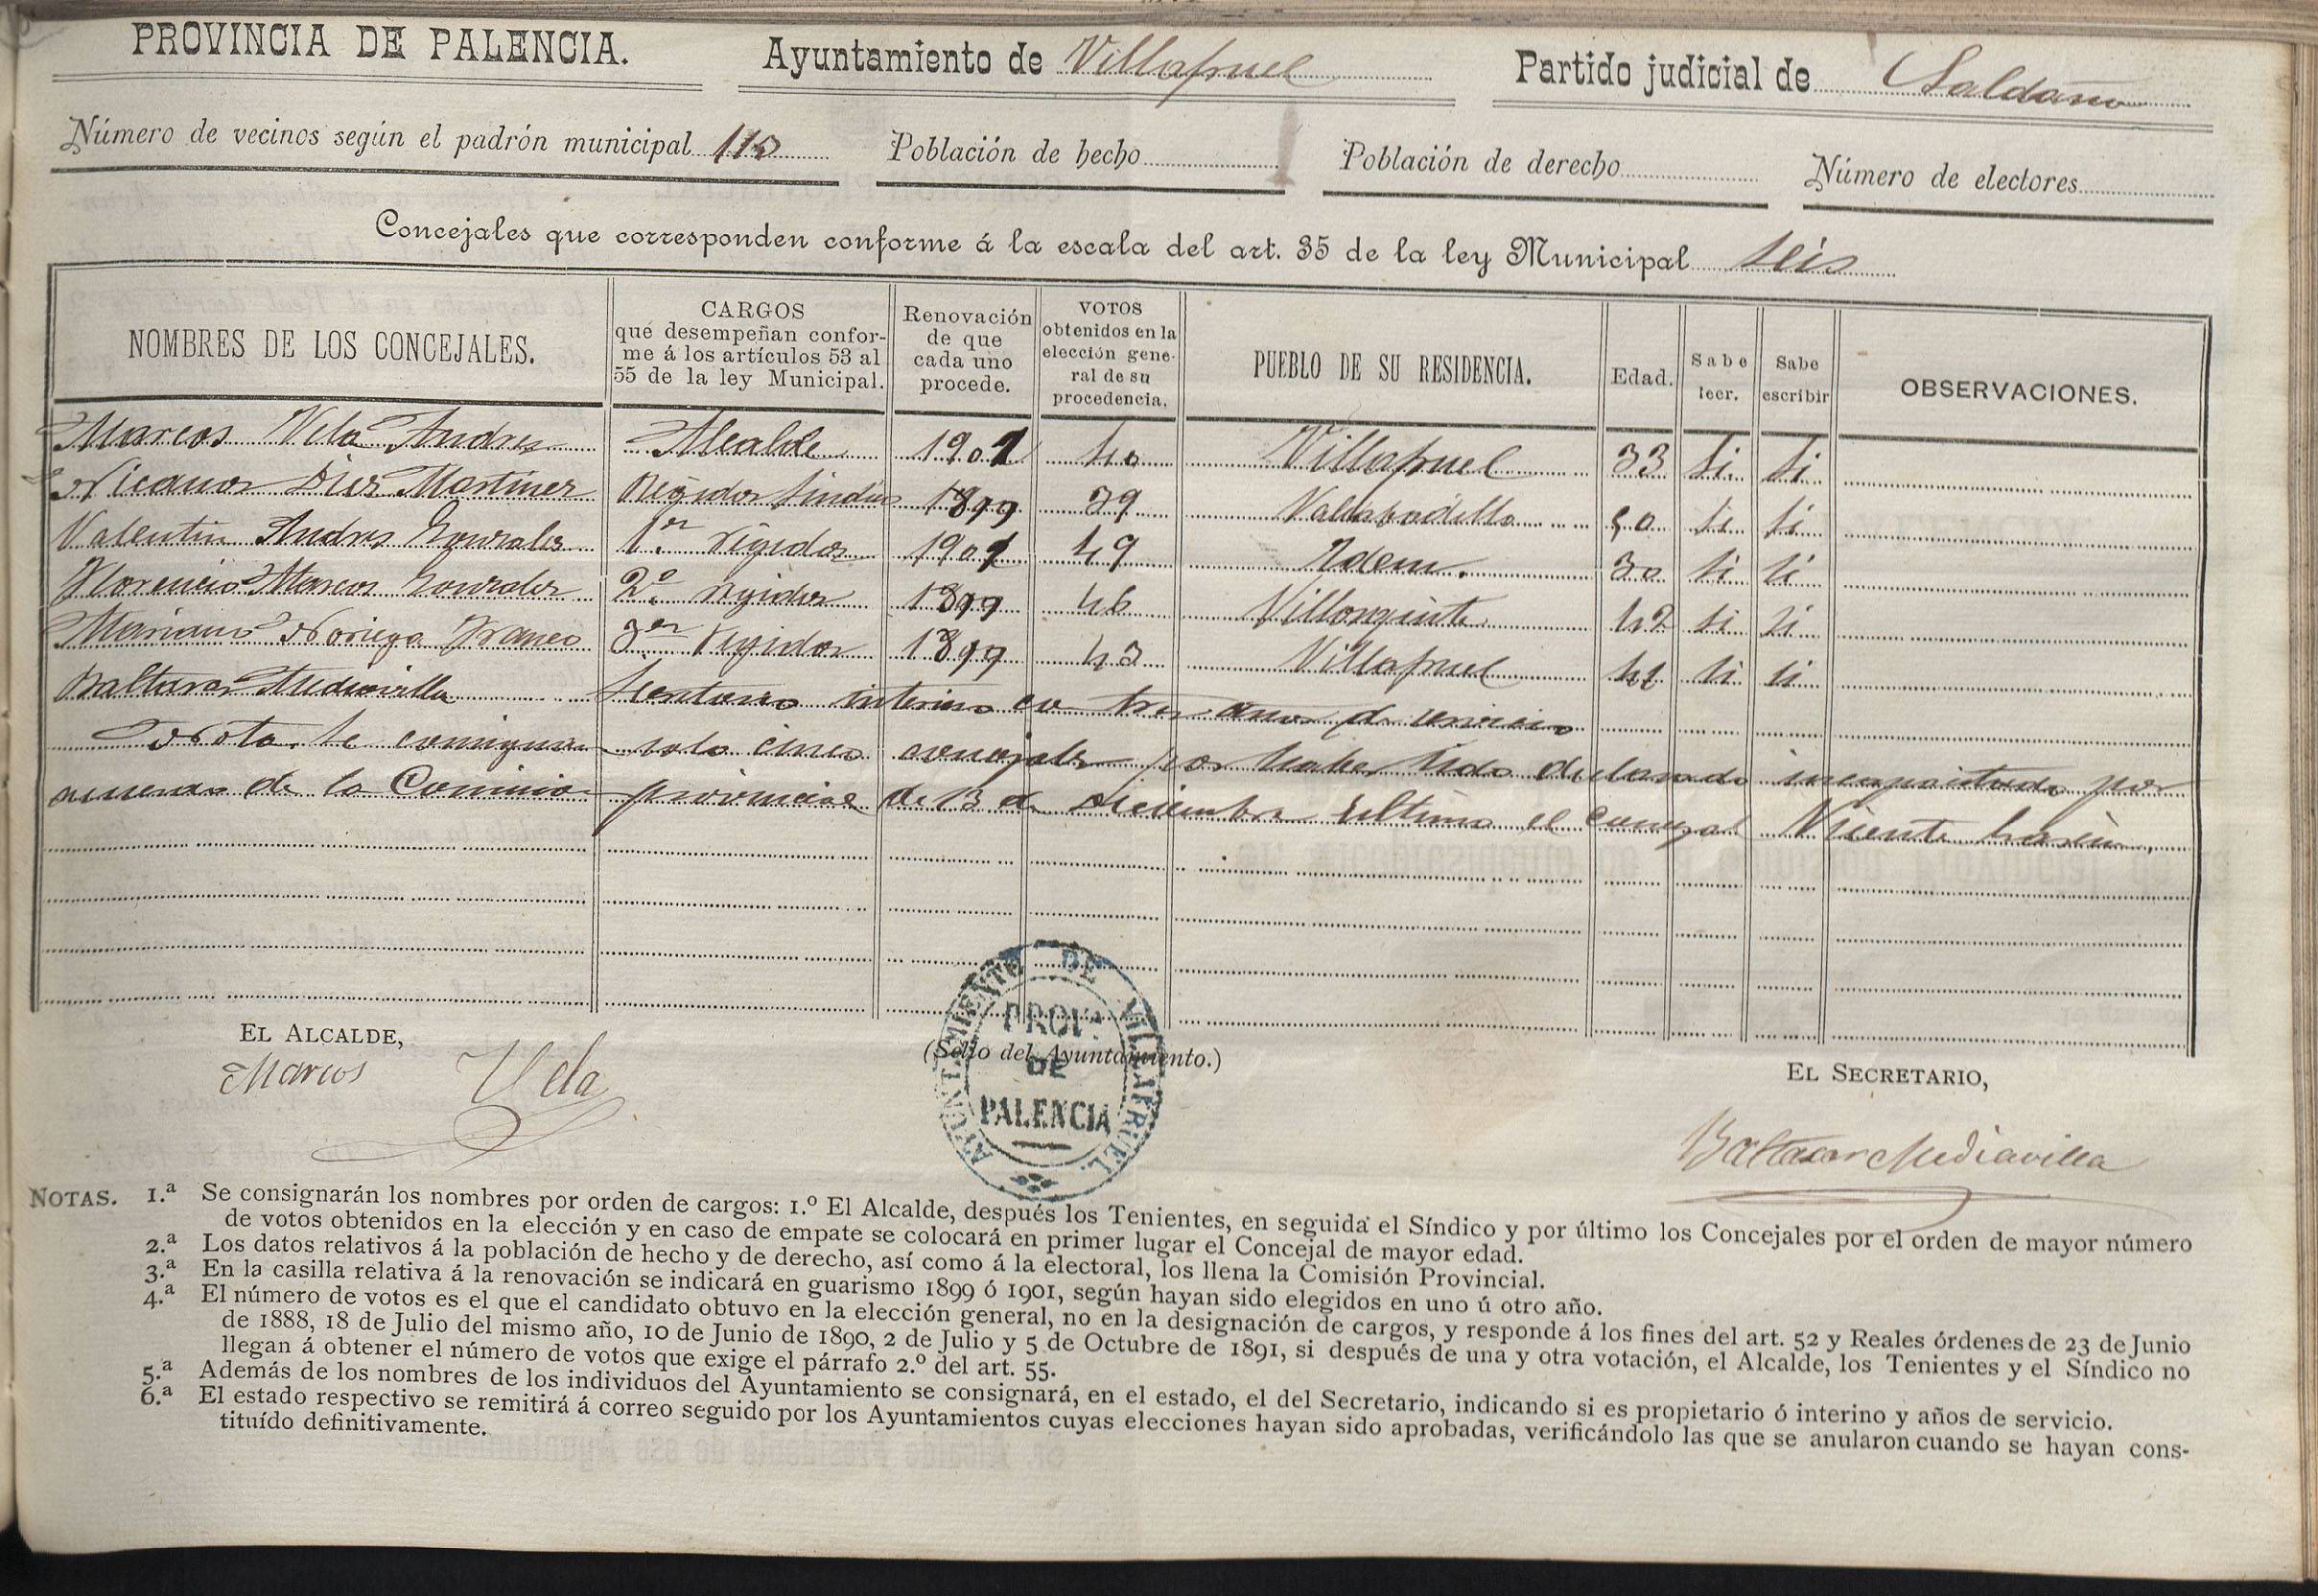 PROVINCIA DE PALENCIA. Ayuntamiento de Villafruel Partido judicial de Saldaña
Número de vecinos según el padrón municipal 110 Población de hecho Población de derecho Número de electores
Concejales que corresponden conforme á la escala del art. 35 de la ley Municipal seis
NOMBRES DE LOS CONCEJALES.
CARGOS
que desempeñan confor-
me á los artículos 53 al
55 de la ley Municipal.
Renovación
de que
cada uno
procede.
VOTOS
obtenidos en la
elección gene-
ral de su
procedencia.
PUEBLO DE SU RESIDENCIA.
Edad.
Sabe
leer.
Sabe
escribir
OBSERVACIONES.
Marcos Vela Andres Alcalde 1901 40 Villafruel 33 si si
Nicanor Diez Martinez Regidor Sindico 1899 39 Valcabadillo 50 si si
Valentin Andres Gonzalez 1.er regidor 1901 49 Idem. 30 si si
Florencio Marcos Gonzalez 2.º regidor 1899 46 Villorquite 42 si si
Mariano Noriega Franco 3.er regidor 1899 43 Villafruel 41 si si
Baltasar Mediavilla Secretario interino con tres años de servicio
Nota. Se consignan solo cinco concejales por haber sido declarado incapacitado por
acuerdo de la Comision provincial de 13 de Diciembre último el concejal Vicente
EL ALCALDE,
Marcos Vela
(Sello del Ayuntamiento.)
AYUNTAMIENTO DE VILLAFRUEL
PROV.ª
DE
PALENCIA
EL SECRETARIO,
Baltasar Mediavilla
NOTAS. 1.ª Se consignarán los nombres por orden de cargos: 1.º El Alcalde, después los Tenientes, en seguida el Síndico y por último los Concejales por el orden de mayor número
de votos obtenidos en la elección y en caso de empate se colocará en primer lugar el Concejal de mayor edad.
2.ª Los datos relativos á la población de hecho y de derecho, así como á la electoral, los llena la Comisión Provincial.
3.ª En la casilla relativa á la renovación se indicará en guarismo 1899 ó 1901, según hayan sido elegidos en uno ú otro año.
4.ª El número de votos es el que el candidato obtuvo en la elección general, no en la designación de cargos, y responde á los fines del art. 52 y Reales órdenes de 23 de Junio
de 1888, 18 de Julio del mismo año, 10 de Junio de 1890, 2 de Julio y 5 de Octubre de 1891, si después de una y otra votación, el Alcalde, los Tenientes y el Síndico no
llegan á obtener el número de votos que exige el párrafo 2.º del art. 55.
5.ª Además de los nombres de los individuos del Ayuntamiento se consignará, en el estado, el del Secretario, indicando si es propietario ó interino y años de servicio.
6.ª El estado respectivo se remitirá á correo seguido por los Ayuntamientos cuyas elecciones hayan sido aprobadas, verificándolo las que se anularon cuando se hayan cons-
tituído definitivamente.